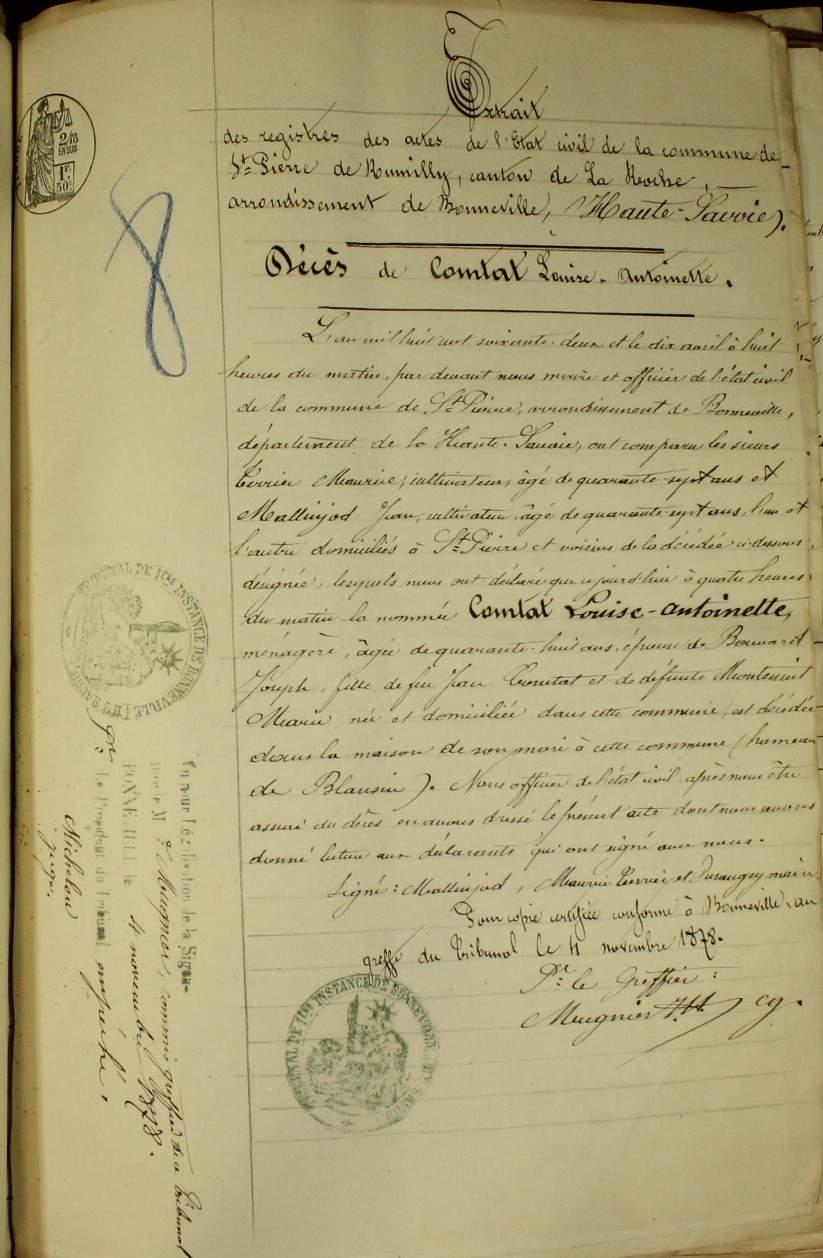 2/10
EN SUS
1F
50c
8
Extrait
des registres des actes de l'Etat civil de la commune de
St Pierre de Rumilly, canton de La Roche,
arrondissement de Bonneville, (Haute-Savoie).
Décès de Comtat Louise-Antoinette.
L'an mil huit cent soixante-deux et le dix avril à huit
heures du matin, par devant nous maire et officier de l'état civil
de la commune de St Pierre, arrondissement de Bonneville,
département de la Haute-Savoie, ont comparu les sieurs
Maurice, cultivateur, âgé de quarante-sept ans et
Mallinjod Jean, cultivateur, âgé de quarante-sept ans, l'un et
l'autre domiciliés à St Pierre et voisins de la décédée ci-dessous
désignée, lesquels nous ont déclaré que cejourd'hui à quatre heures
du matin la nommée Comtat Louise-Antoinette,
ménagère, âgée de quarante-huit ans, épouse de
Joseph, fille de feu Jean Comtat et de défunte
Marie née et domiciliée dans cette commune, est décédée
dans la maison de son mari à cette commune (hameau
de ). Nous officier de l'état civil, après nous être
assuré du décès en avons dressé le présent acte dont nous avons
donné lecture aux déclarants qui ont signé avec nous.
Signé: Mallinjod, Maurice et maire
Pour copie certifiée conforme à Bonneville, au
greffe du Tribunal le 4 novembre 1878.
Pr le Greffier:
Meugnier cg.
TRIBUNAL DE 1ère INSTANCE DE BONNEVILLE (Hte SAVOIE)
TRIBUNAL DE 1ère INSTANCE DE BONNEVILLE (Hte SAVOIE)
Vu pour Légalisation de la Signa-
Meugnier, commis greffier de ce Tribunal
BONNEVILLE le 4 novembre 1878.
Le Président du Tribunal empêché.
Michelou
juge.